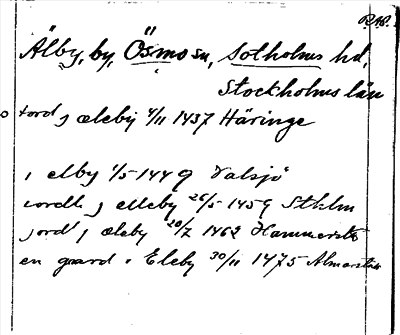 Älby, by, Ösmo sn, Sotholms hd,
Stockholms län
tord j æleby 4/11 1437 Häringe
i elby 1/5 1449 Valsjö
j elleby 26/5 1459 Sthlm
jord j æleby 20/7 1462 Hammersta
en gaard i Eleby 30/11 1475